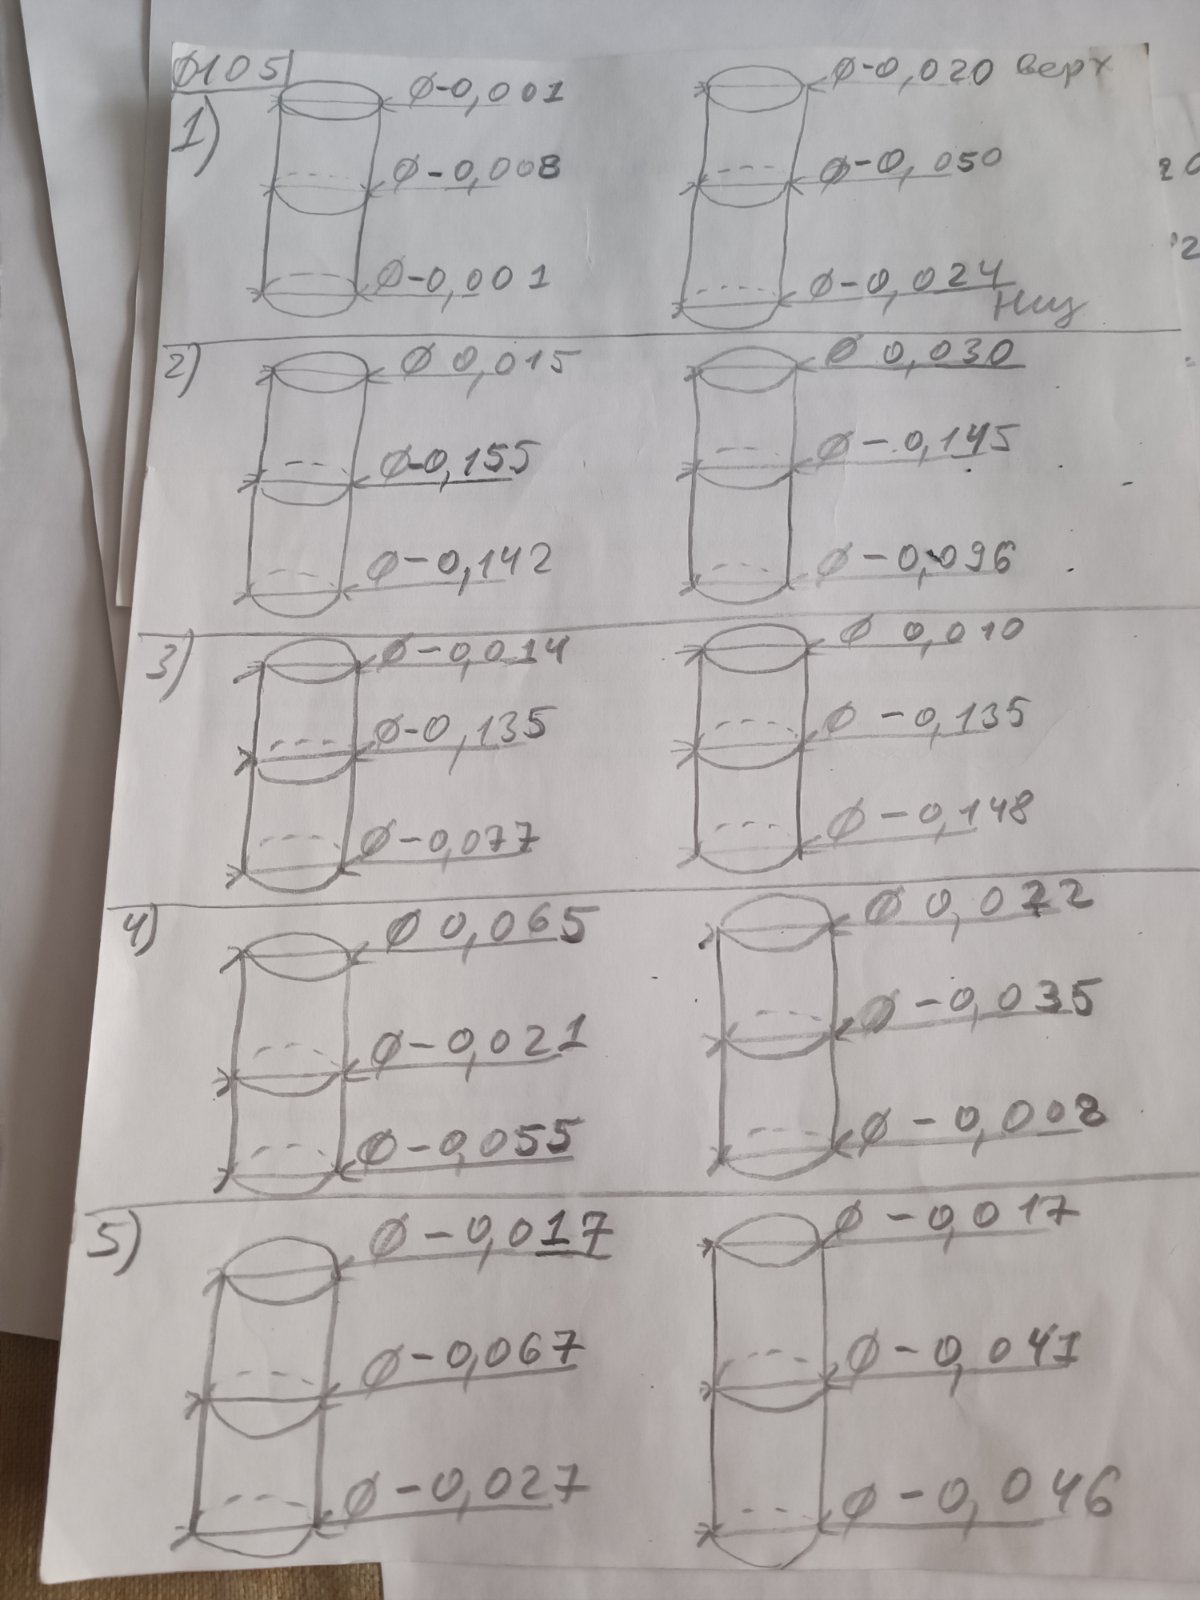 Ø105
1)
Ø-0,001
Ø-0,020 верх
Ø-0,008
Ø-0,050
Ø-0,001
Ø-0,024
Низ
2)
Ø 0,015
Ø 0,030
Ø-0,155
Ø-0,145
Ø-0,142
Ø-0,096
3)
Ø-0,014
Ø 0,010
Ø-0,135
Ø-0,135
Ø-0,077
Ø-0,148
4)
Ø 0,065
Ø 0,022
Ø-0,021
Ø-0,035
Ø-0,055
Ø-0,008
5)
Ø-0,017
Ø-0,017
Ø-0,067
Ø-0,041
Ø-0,027
Ø-0,046